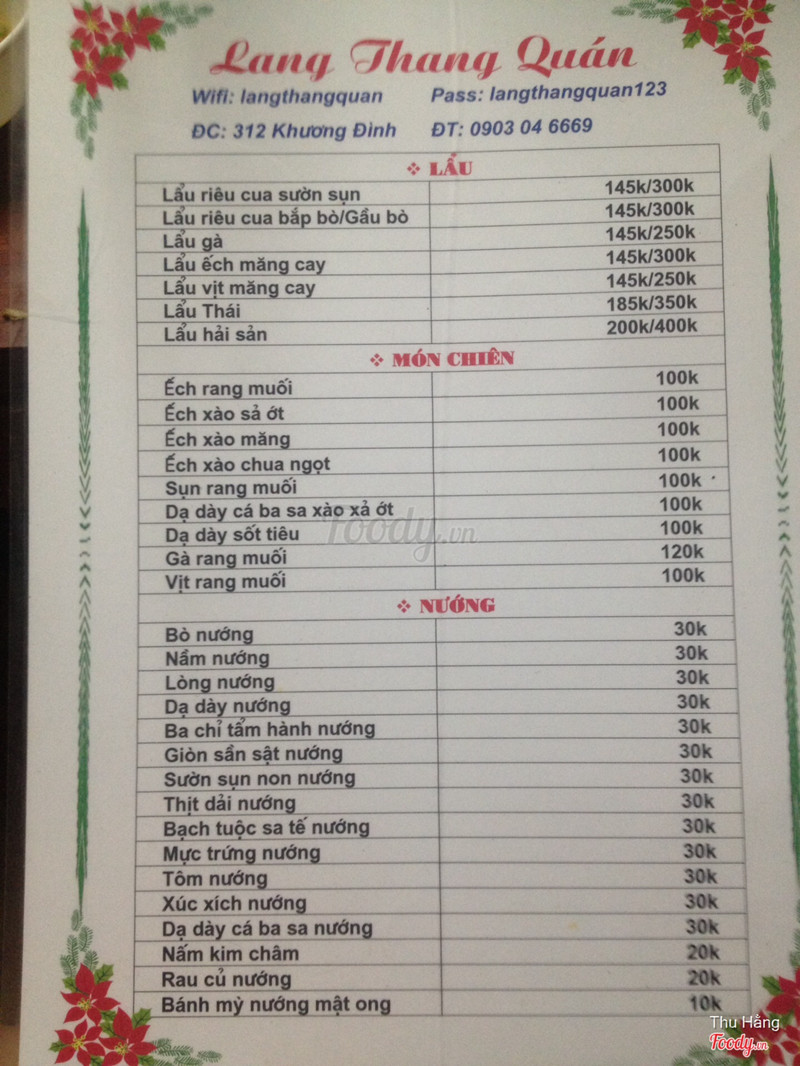 Lang Thang Quán
Wifi: langthangquan Pass: langthangquan123
ĐC: 312 Khương Đình ĐT: 0903 04 6669
❖ LẨU
Lẩu riêu cua sườn sụn 145k/300k
Lẩu riêu cua bắp bò/Gầu bò 145k/300k
Lẩu gà 145k/250k
Lẩu ếch măng cay 145k/300k
Lẩu vịt măng cay 145k/250k
Lẩu Thái 185k/350k
Lẩu hải sản 200k/400k
❖ MÓN CHIÊN
Ếch rang muối 100k
Ếch xào sả ớt 100k
Ếch xào măng 100k
Ếch xào chua ngọt 100k
Sụn rang muối 100k
Dạ dày cá ba sa xào xả ớt 100k
Dạ dày sốt tiêu 100k
Gà rang muối 120k
Vịt rang muối 100k
❖ NƯỚNG
Bò nướng 30k
Nầm nướng 30k
Lòng nướng 30k
Dạ dày nướng 30k
Ba chỉ tẩm hành nướng 30k
Giòn sần sật nướng 30k
Sườn sụn non nướng 30k
Thịt dải nướng 30k
Bạch tuộc sa tế nướng 30k
Mực trứng nướng 30k
Tôm nướng 30k
Xúc xích nướng 30k
Dạ dày cá ba sa nướng 30k
Nấm kim châm 20k
Rau củ nướng 20k
Bánh mỳ nướng mật ong 10k
Foody.vn
Thu Hằng
Foody.vn